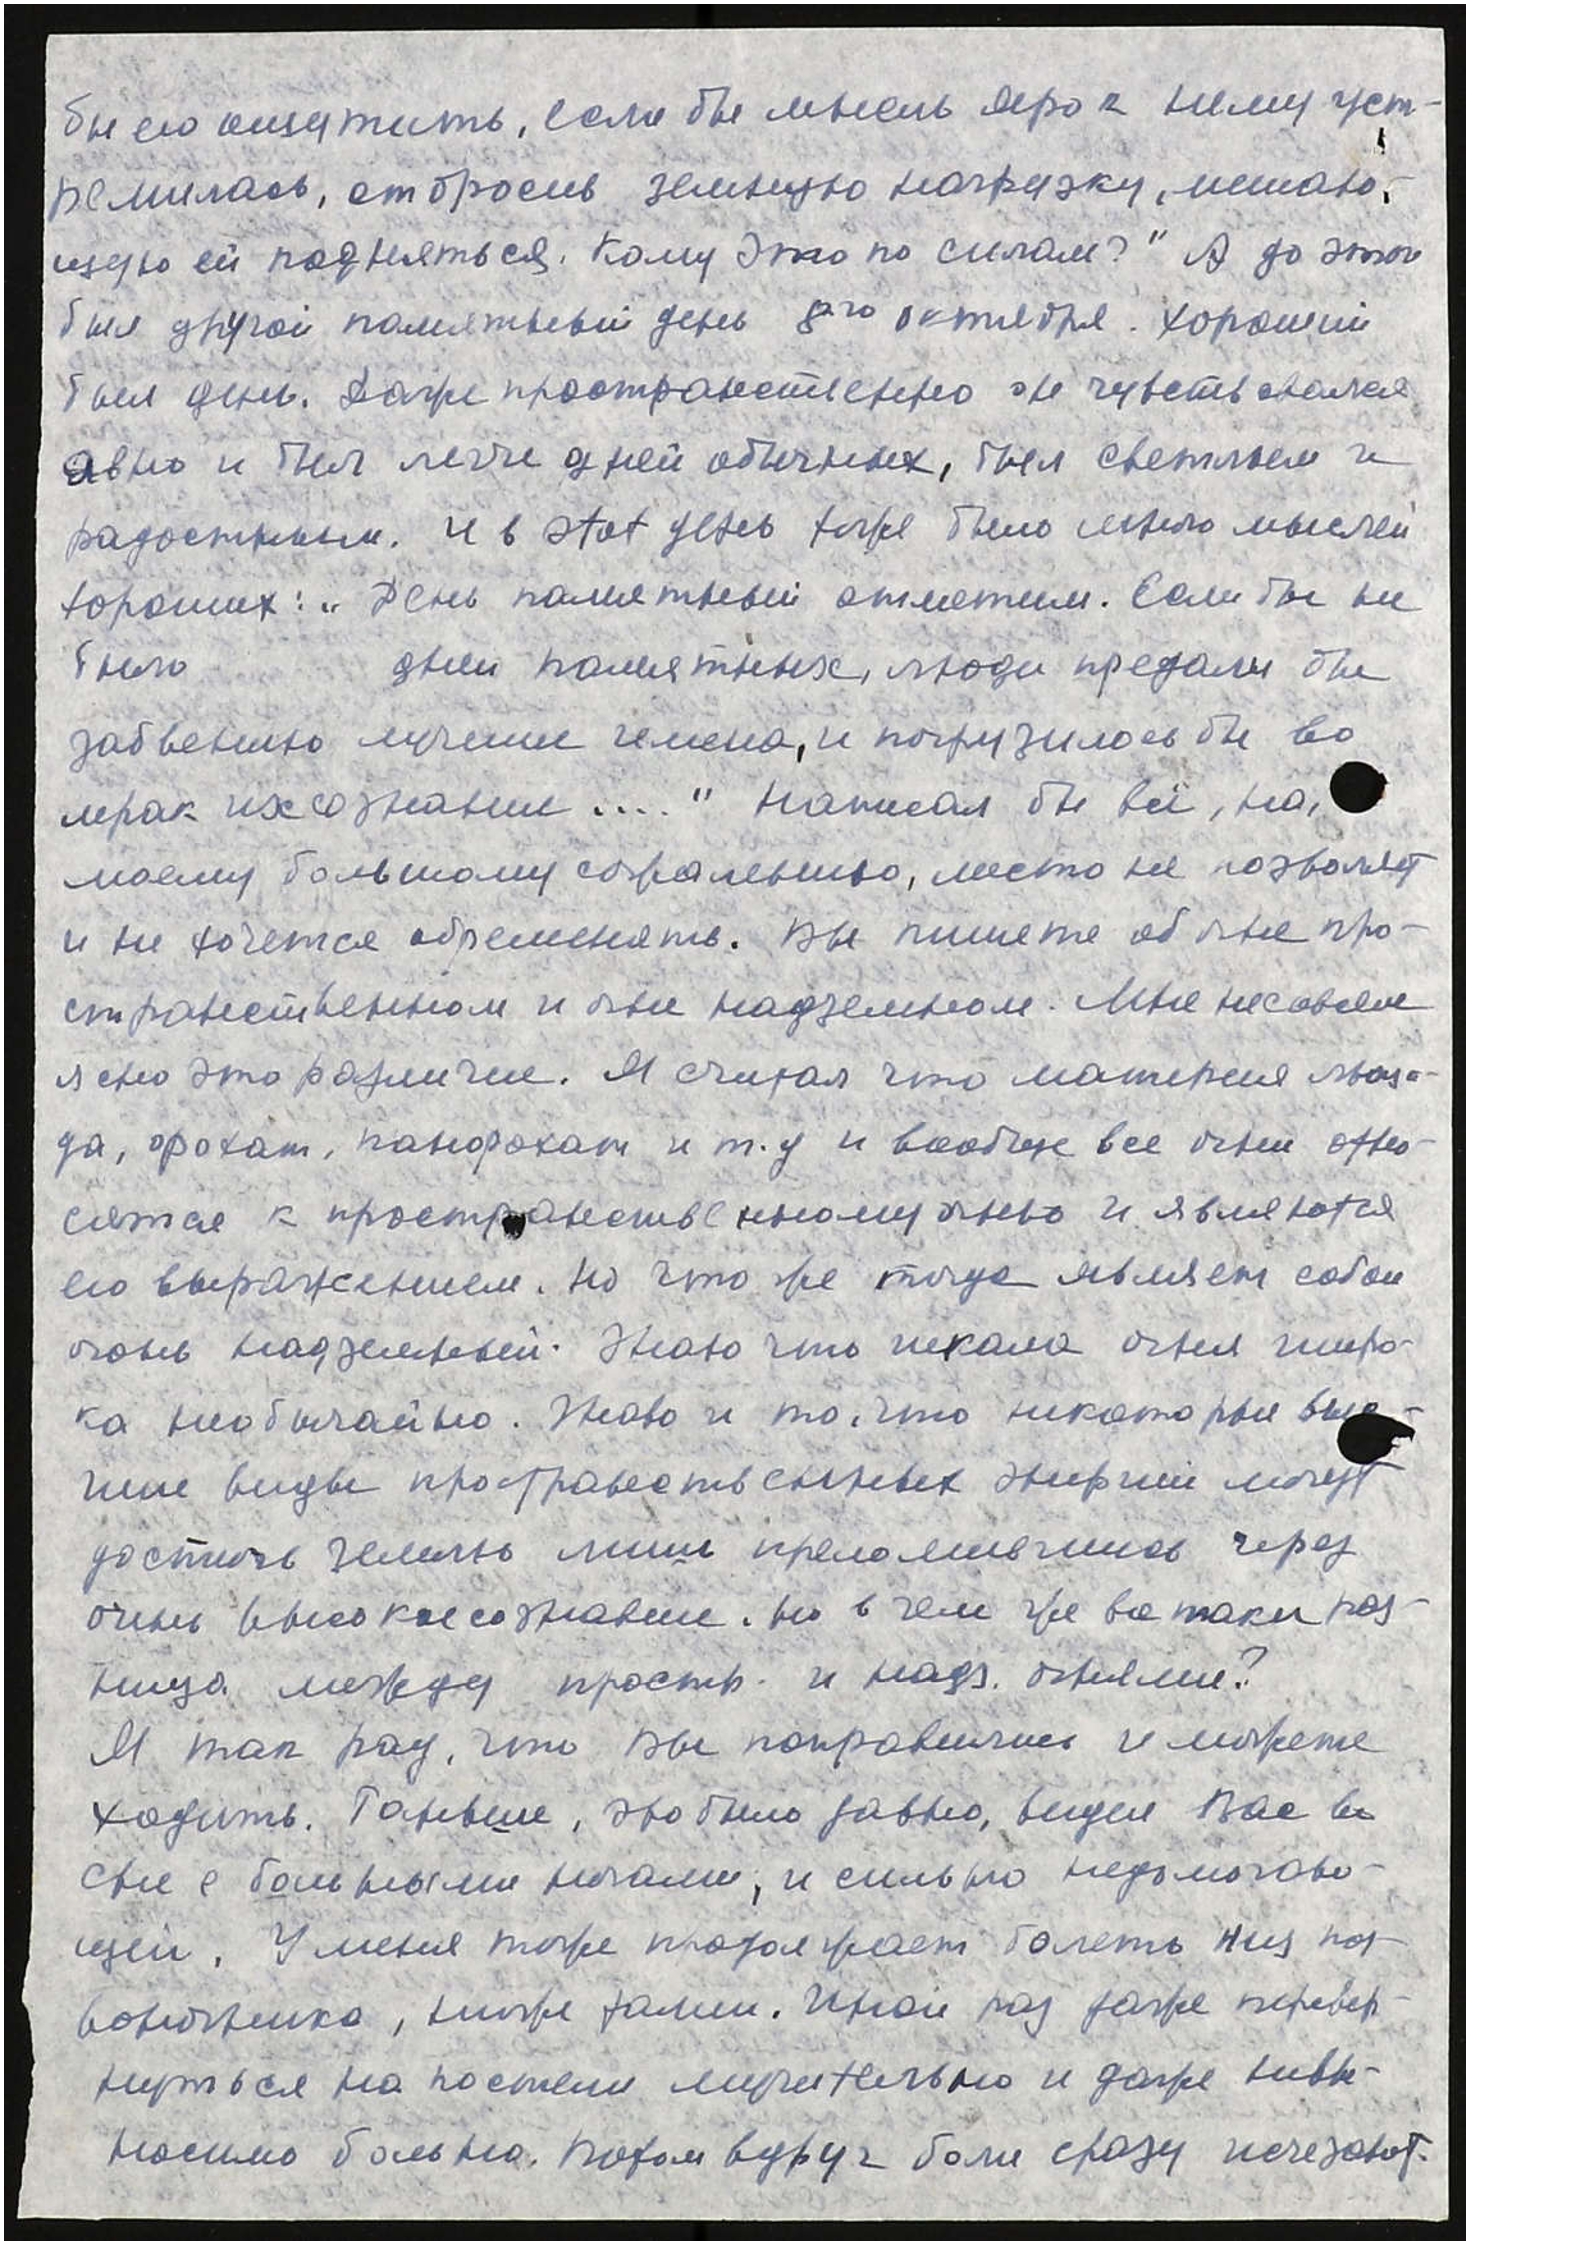 бы его ощутить, если бы мысль ярок нему уст-
ремилась, отбросив земную нагрузку, мешаю-
щую ей подняться. Кому это по силам?" А до этого
был другой памятный день 8го октября. Хороший
был день. Даже пространственно он чувствовался
явно и был легче дней обычных, был светлым и
радостным. И в этот день тоже было много мыслей
хороших: „День памятный отметим. Если бы не
было дней памятных, люди предали бы
забвению лучшие имена, и погрузилось бы во
мрак их сознание ...." Написал бы всё, но,
моему большому сожалению, место не позволяет
и не хочется обременять. Вы пишете об огне про-
странственном и огне надземном. Мне не совсем
ясно это различие. Я считал что материя люци-
да, фохат, панфохат и т.д и вообще все огни отно-
сятся к пространственному огню и являются
его выражением. Но что же тогда являет собой
огонь надземный. Знаю что шкала огня широ-
ка необычайно. Знаю и то, что некоторые выс-
шие виды пространственных энергий могут
достичь землю лишь преломившись через
очень высокое сознание. Но в чем же все таки раз-
ница между простр. и надз. огнями?
Я так рад, что Вы поправились и можете
ходить. Раньше, это было давно, видел Вас во
сне с больными ногами, и сильно недомогаю-
щей. У меня тоже продолжает болеть низ поз-
воночника, ниже талии. Иной раз даже перевер-
нуться на постели мучительно и даже невы-
носимо больно. Потом вдруг боли сразу исчезают.